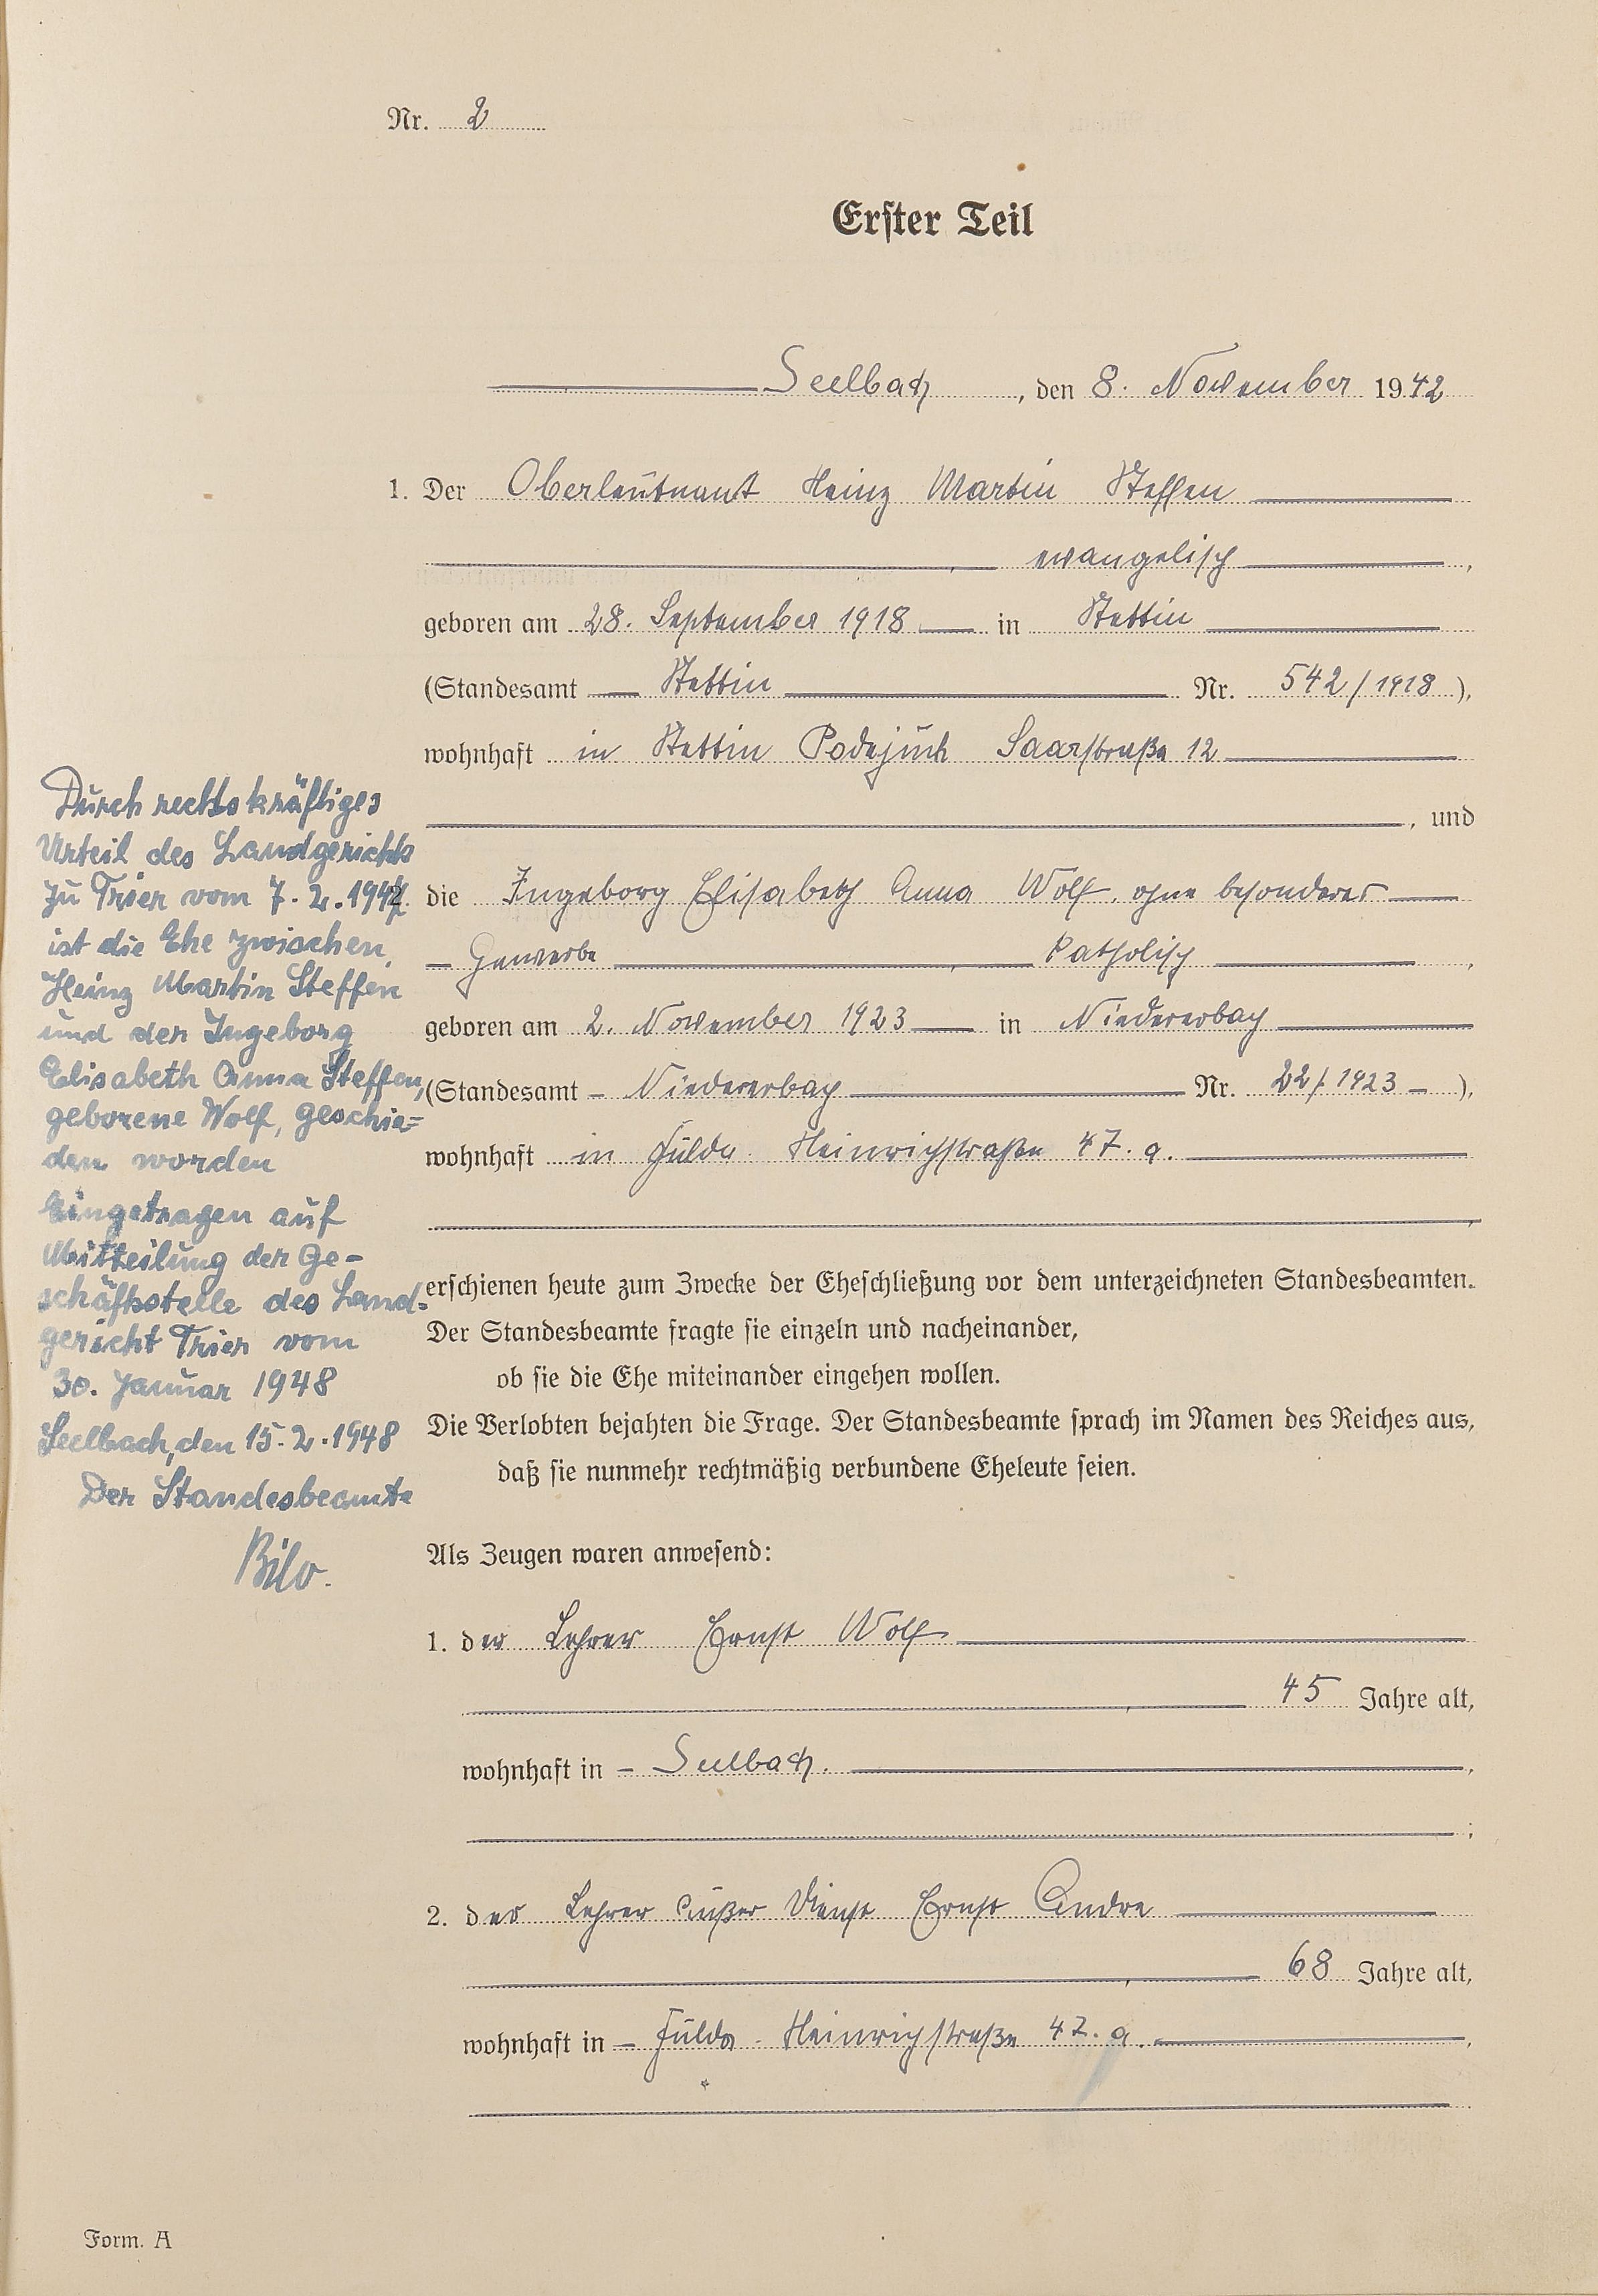 Nr. 2
Erster Teil
Seelbach, den 8. November 1942
1. Der Oberleutnant Heinz Martin Steffen
, evangelisch,
geboren am 28. September 1918 in Stettin
(Standesamt Stettin Nr. 542/1918),
wohnhaft in Stettin Podejuch Saarstraße 12
, und
die Ingeborg Elisabeth Anna Wolf, ohne besonderes
Gewerbe, katholisch,
geboren am 2. November 1923 in Niedererbach
(Standesamt – Niedererbach Nr. 22/1923 –),
wohnhaft in Fulda. Heinrichstraße 47. a.
erschienen heute zum Zwecke der Eheschließung vor dem unterzeichneten Standesbeamten.
Der Standesbeamte fragte sie einzeln und nacheinander,
ob sie die Ehe miteinander eingehen wollen.
Die Verlobten bejahten die Frage. Der Standesbeamte sprach im Namen des Reiches aus,
daß sie nunmehr rechtmäßig verbundene Eheleute seien.
Als Zeugen waren anwesend:
1. der Lehrer Ernst Wolf
, 45 Jahre alt,
wohnhaft in – Seelbach.,
;
2. der Lehrer außer Dienst Ernst Andre
, 68 Jahre alt,
wohnhaft in – Fulda. Heinrichstraße 47. a.,
Durch rechtskräftiges
Urteil des Landgerichts
zu Trier vom 7. 2. 1947.
ist die Ehe zwischen
Heinz Martin Steffen
und der Ingeborg
Elisabeth Anna Steffen,
geborene Wolf, geschie=
den worden
Eingetragen auf
Mitteilung der Ge-
schäftsstelle des Land-
gericht Trier vom
30. Januar 1948
Seelbach, den 15. 2. 1948
Der Standesbeamte
Form. A